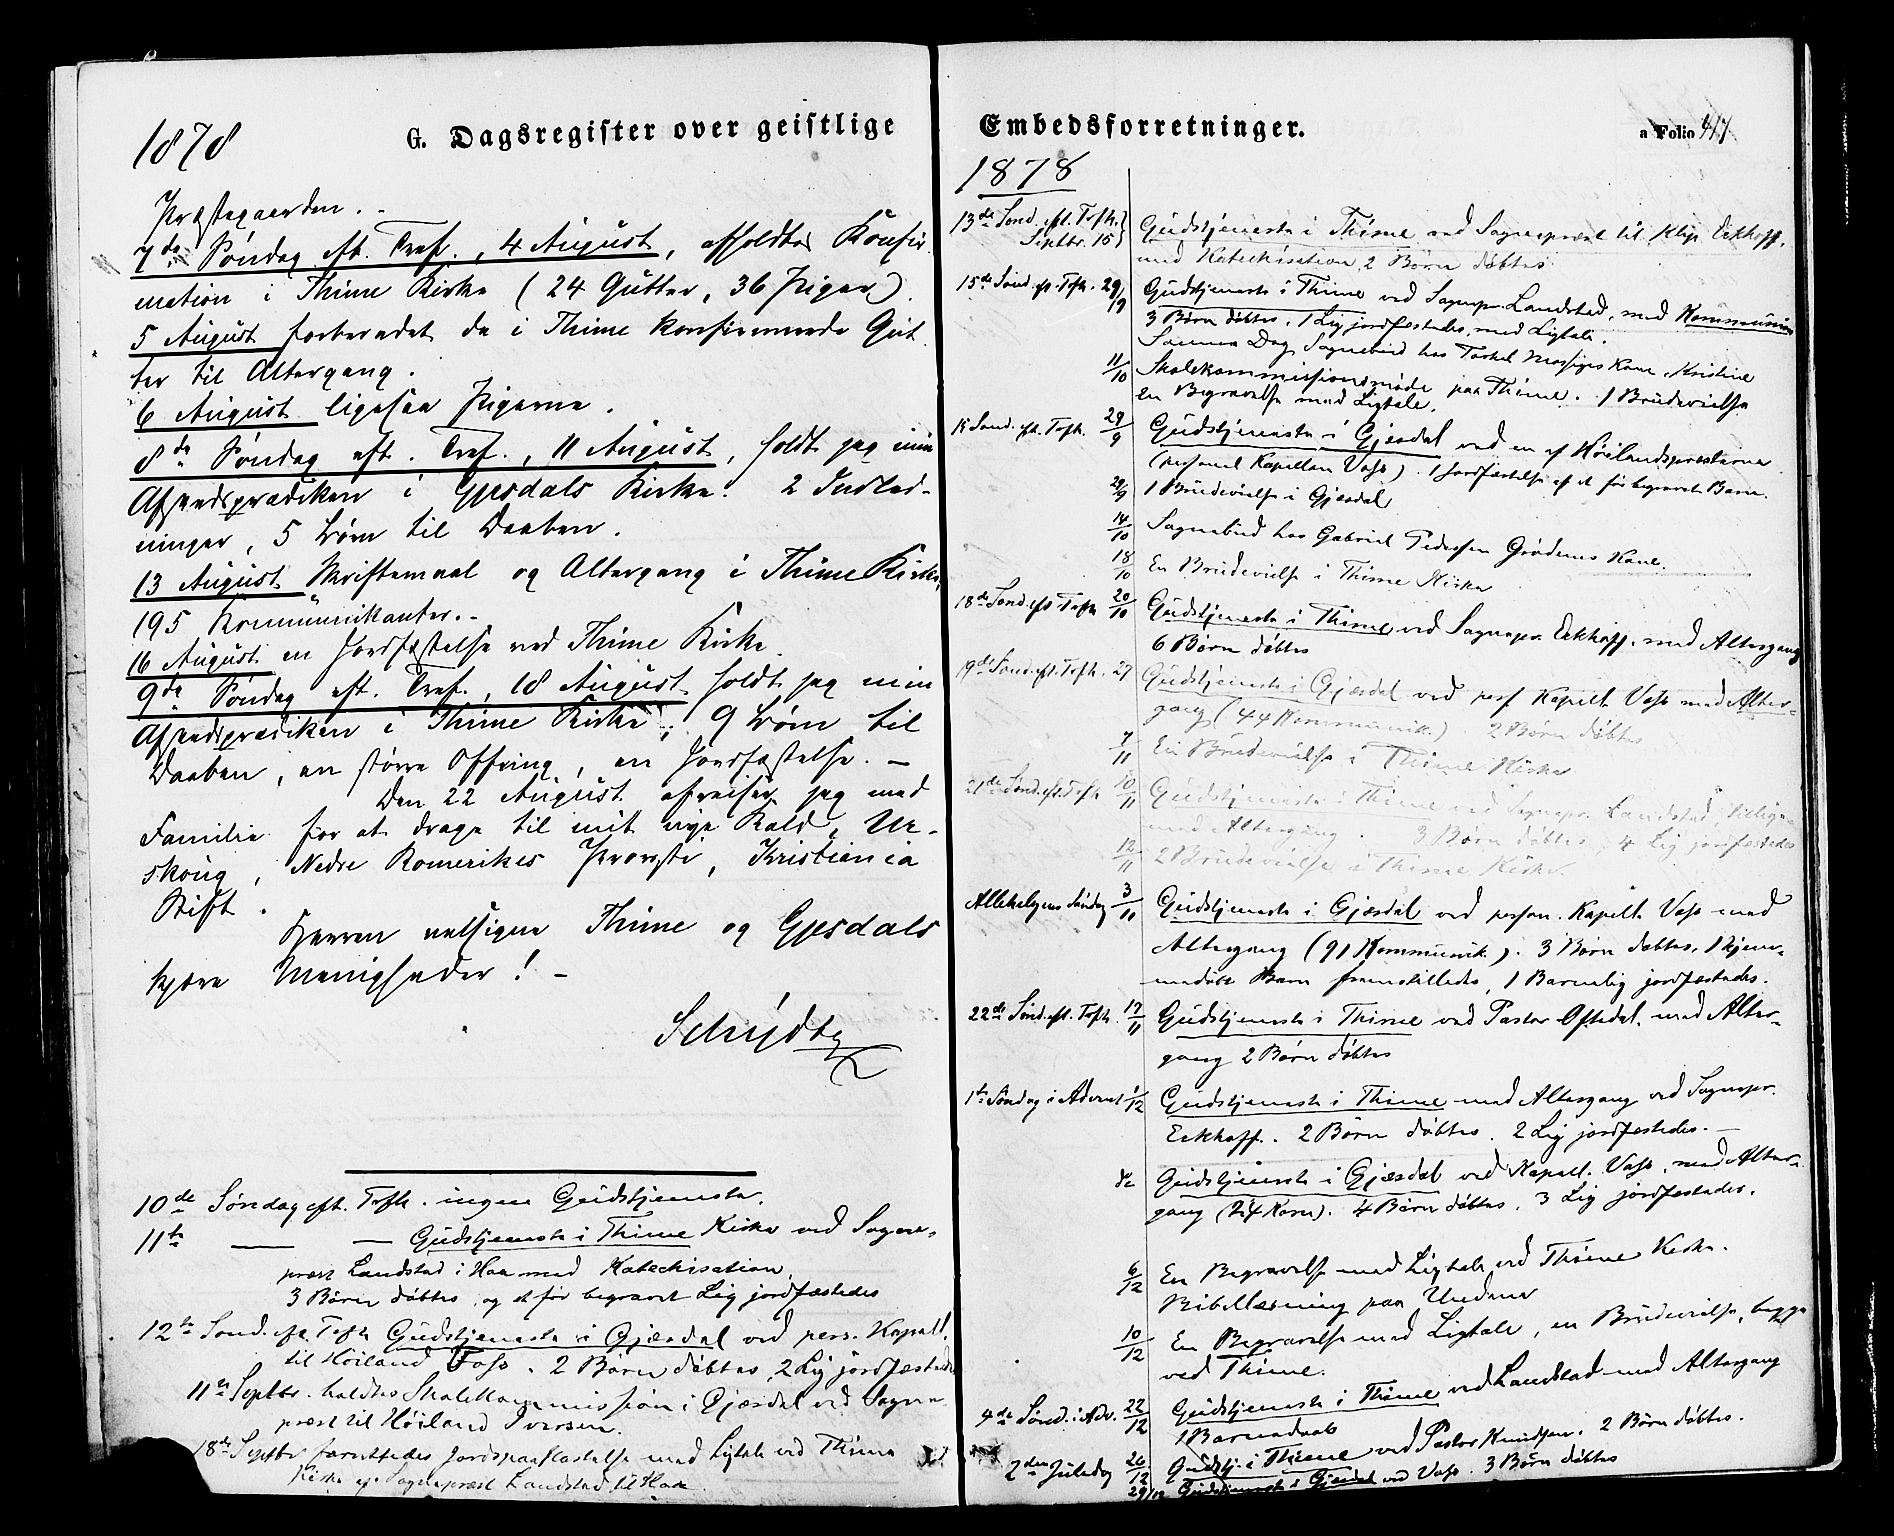 1878
G. Dagsregister over geistlige
Præstegaarden. -
7de Søndag eft. Tref., 4 August, afholdtes Konfir-
mation i Thime Kirke (24 Gutter, 36 Piger).
5 August forberedet de i Thime konfirmerede Gut
ter til Altergang.
6 August ligesaa Pigerne.
8de Søndag eft. Tref., 11 August, holdt jeg min
Afskedsprædiken i Gjesdals Kirke. 2 Indled-
ninger, 5 Børn til Daaben.
13 August Skriftemaal og Altergang i Thime Kirke,
195 Kommunikanter. -
16 August en Jordfæstelse ved Thime Kirke.
9de Søndag eft. Tref., 18 August holdt jeg min
Afskedsprædiken i Thime Kirke, 9 Børn til
Daaben, en større Offring, en Jordfæstelse. -
Den 22 August afreiser jeg med
Familie for at drage til mit nye Kald, Ur-
skoug, Nedre Romerikes Provsti, Kristiania
Stift.
Herren velsigne Thime og Gjesdals
kjære Menigheder! -
Schjødt
10de Søndag eft. Trefh. ingen Gudstjeneste.
11te — — Gudstjeneste i Thime Kirke ved Sogne-
præst Landstad i Haa med Katechisation,
3 Børn døbtes, og et før begravet Lig jordfæstedes
12te Sønd. eft. Trefh Gudstjeneste i Gjæsdal ved pers. Kapell.
til Høiland Vaso. 2 Børn døbtes, 2 Lig jordfæstedes
11te Septbr. holdtes Skolekommission i Gjæsdal ved Sogne
præst til Høiland Iversen.
18de Septbr forrettedes Jordspaakastelse med Ligtale ved Thime
Kirke af Sognepræst Landstad til Haa.
Embedsforretninger.
a Folio 417
1878
13de Sønd. eft. Trefh. Septbr. 15 Gudstjeneste i Thime ved Sognepræst til Klep Eckhoff,
med Katechisation, 2 Børn døbtes.
15de Sønd. eft. Trefh. 29/9 Gudstjeneste i Thime ved Sognepr. Landstad, med Kommunion
3 Børn døbtes, 1 Lig jordfæstedes med Ligtale.
Samme Dag Sognebud hos Torkel Mossiges Kone, Kristine
11/10 Skolekommissionsmøde paa Thime. 1 Brudevielse
en Begravelse med Ligtale.
15 Sønd. eft. Trefh. 29/9 Gudstjeneste i Gjæsdal ved en af Høilandspræsterne
(personel Kapellan Vaso). 1 Jordfæstelse af et før begravet Barn.
29/9 1 Brudevielse i Gjæsdal
14/10 Sognebud hos Gabriel Pedersen Grødems Kone.
18/10 En Brudevielse i Thime Kirke
18de Sønd. eft. Trefh 20/10 Gudstjeneste i Thime ved Sognepr. Eckhoff, med Altergang
6 Børn døbtes
19de Sønd. eft. Trefh. 27 Gudstjeneste i Gjæsdal ved pers Kapell. Vaso med Alter-
gang (44 Kommunik.) 2 Børn døbtes
7/11 En Brudevielse i Thime Kirke
21de Sønd. eft. Trefh 10/11 Gudstjeneste i Thime ved Sognepr. Landstad,
med Altergang. 3 Børn døbtes, 4 Lig jordfæstedes
12/11 2 Brudevielse i Thime Kirke.
Allehelgens Søndag 3/11 Gudstjeneste i Gjæsdal ved person. Kapell. Vaso med
Altergang (91 Kommunik.). 3 Børn døbtes, 1 hjem-
medøbt Barn fremstilledes, 1 Barnelig jordfæstedes.
22de Sønd. eft. Trefh. 17/11 Gudstjeneste i Thime ved Pastor Oftedal, med Alter-
gang 2 Børn døbtes
1te Søndag i Advent 1/12 Gudstjeneste i Thime med Altergang ved Sognepr.
Eckhoff. 2 Børn døbtes. 2 Lig jordfæstedes. -
do Gudstjeneste i Gjæsdal ved Kapell. Vaso, med Alter-
gang (24 Kom). 4 Børn døbtes, 3 Lig jordfæstedes.
6/12 En Begravelse med Ligtale ved Thime Kirke.
Bibellæsning paa Undem
10/12 En Begravelse med Ligtale, en Brudevielse, begge
ved Thime.
4de Sønd. i Adv. 22/12 Gudstjeneste i Thime ved Landstad med Altergang
1 Barnedaab
2den Juledag 26/12 Gudstj. i Thime ved Pastor Knudsen. 2 Børn døbtes.
29/12 Gudstjeneste i Gjæsdal ved Vaso. 3 Børn døbtes